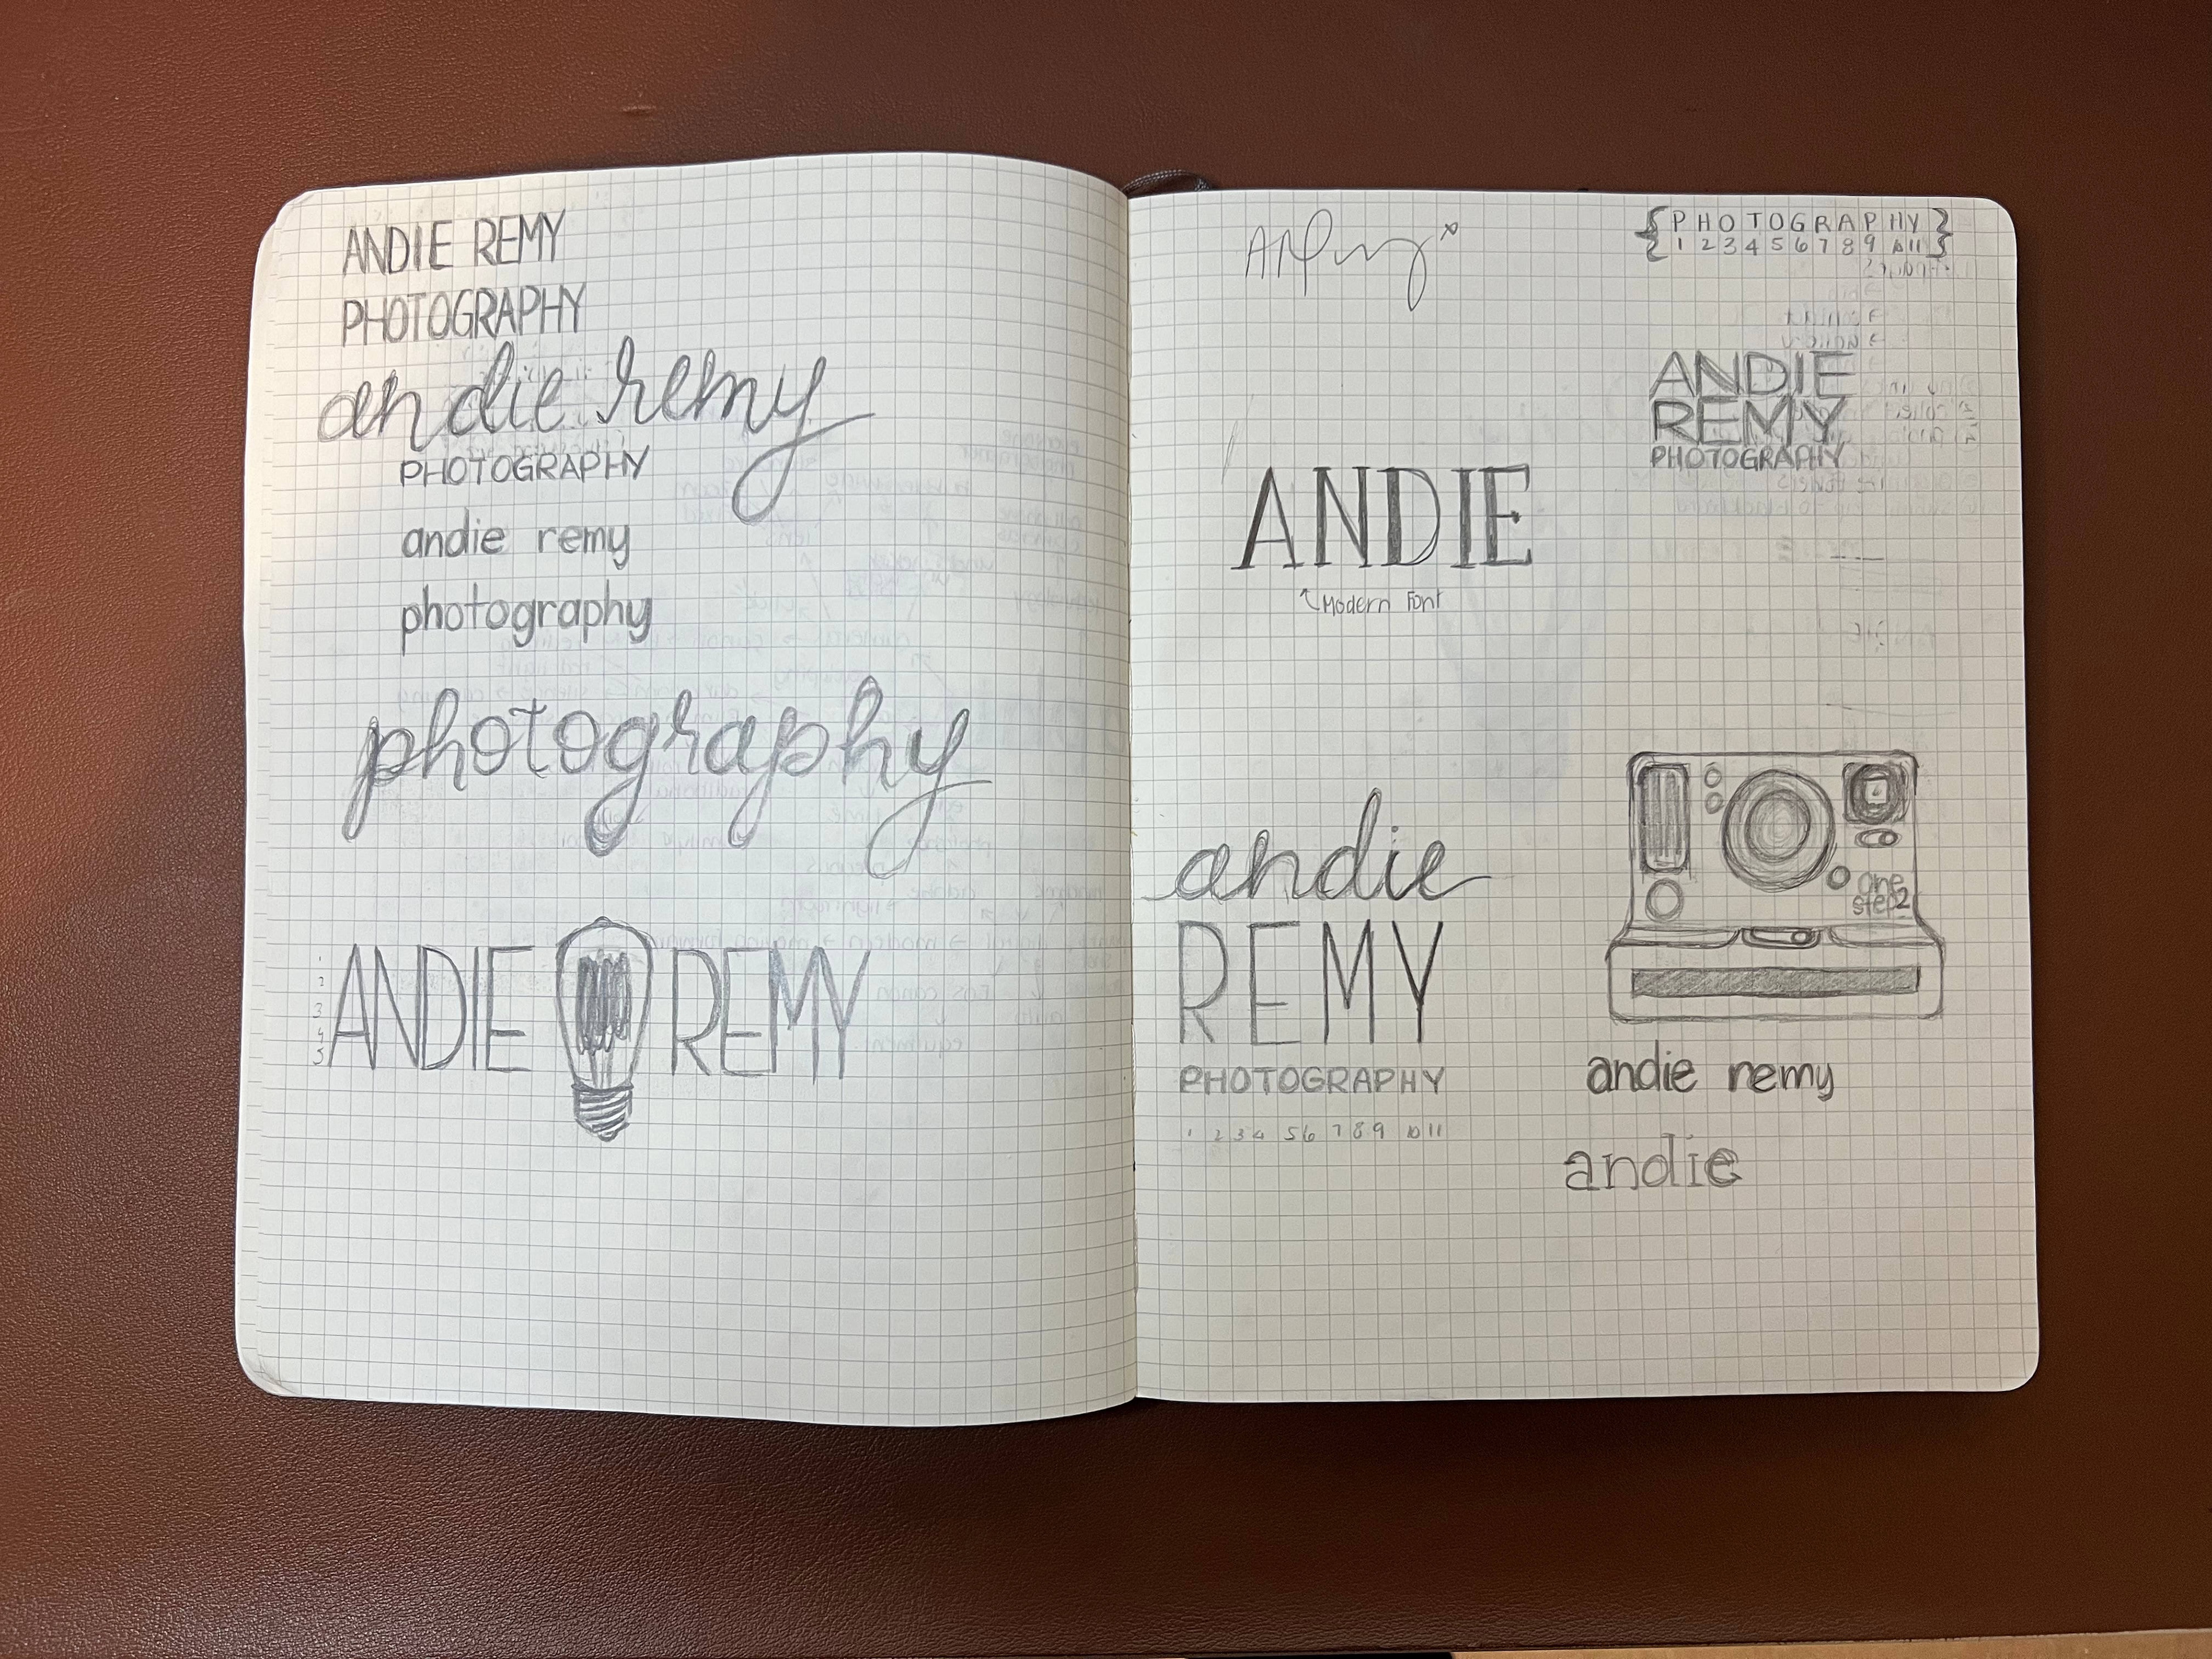 ANDIE REMY
PHOTOGRAPHY
andie remy
PHOTOGRAPHY
andie remy
photography
photography
1
2
3
4
5
ANDIE REMY
{PHOTOGRAPHY}
1 2 3 4 5 6 7 8 9 10 11
ANDIE
REMY
PHOTOGRAPHY
ANDIE
Modern Font
andie
REMY
PHOTOGRAPHY
1 2 3 4 5 6 7 8 9 10 11
one
step2
andie remy
andie